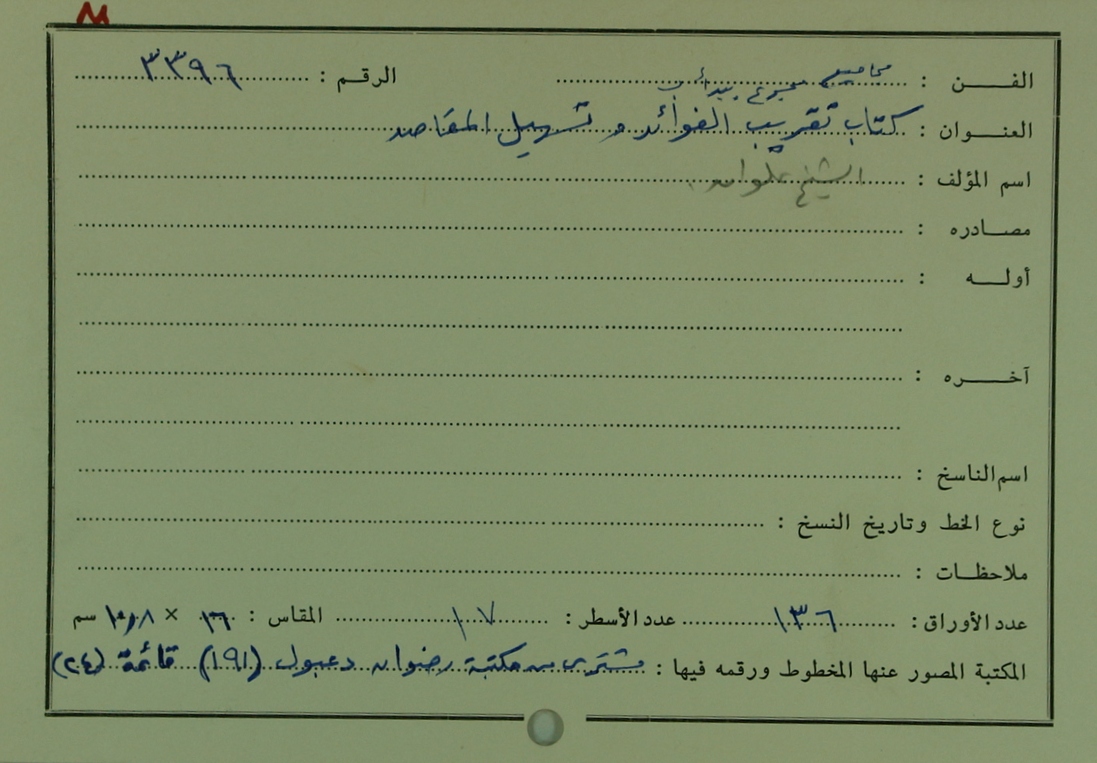 الفـن : مجاميع الرقـم : ٣٣٩٦
العنـوان : كتاب تقريب الفوائد و تسهيل المقاصد
اسم المؤلف : الشيخ علوان
مصـادره :
أولـه :
آخـره :
اسم الناسخ :
نوع الخط وتاريخ النسخ :
ملاحظـات :
عدد الأوراق : ١٣٦ عدد الأسطر : ١٧ المقاس : × سم
المكتبة المصور عنها المخطوط ورقمه فيها : مشترى من مكتبة رضوان دعبول (١٩١) قائمة (٢٤)